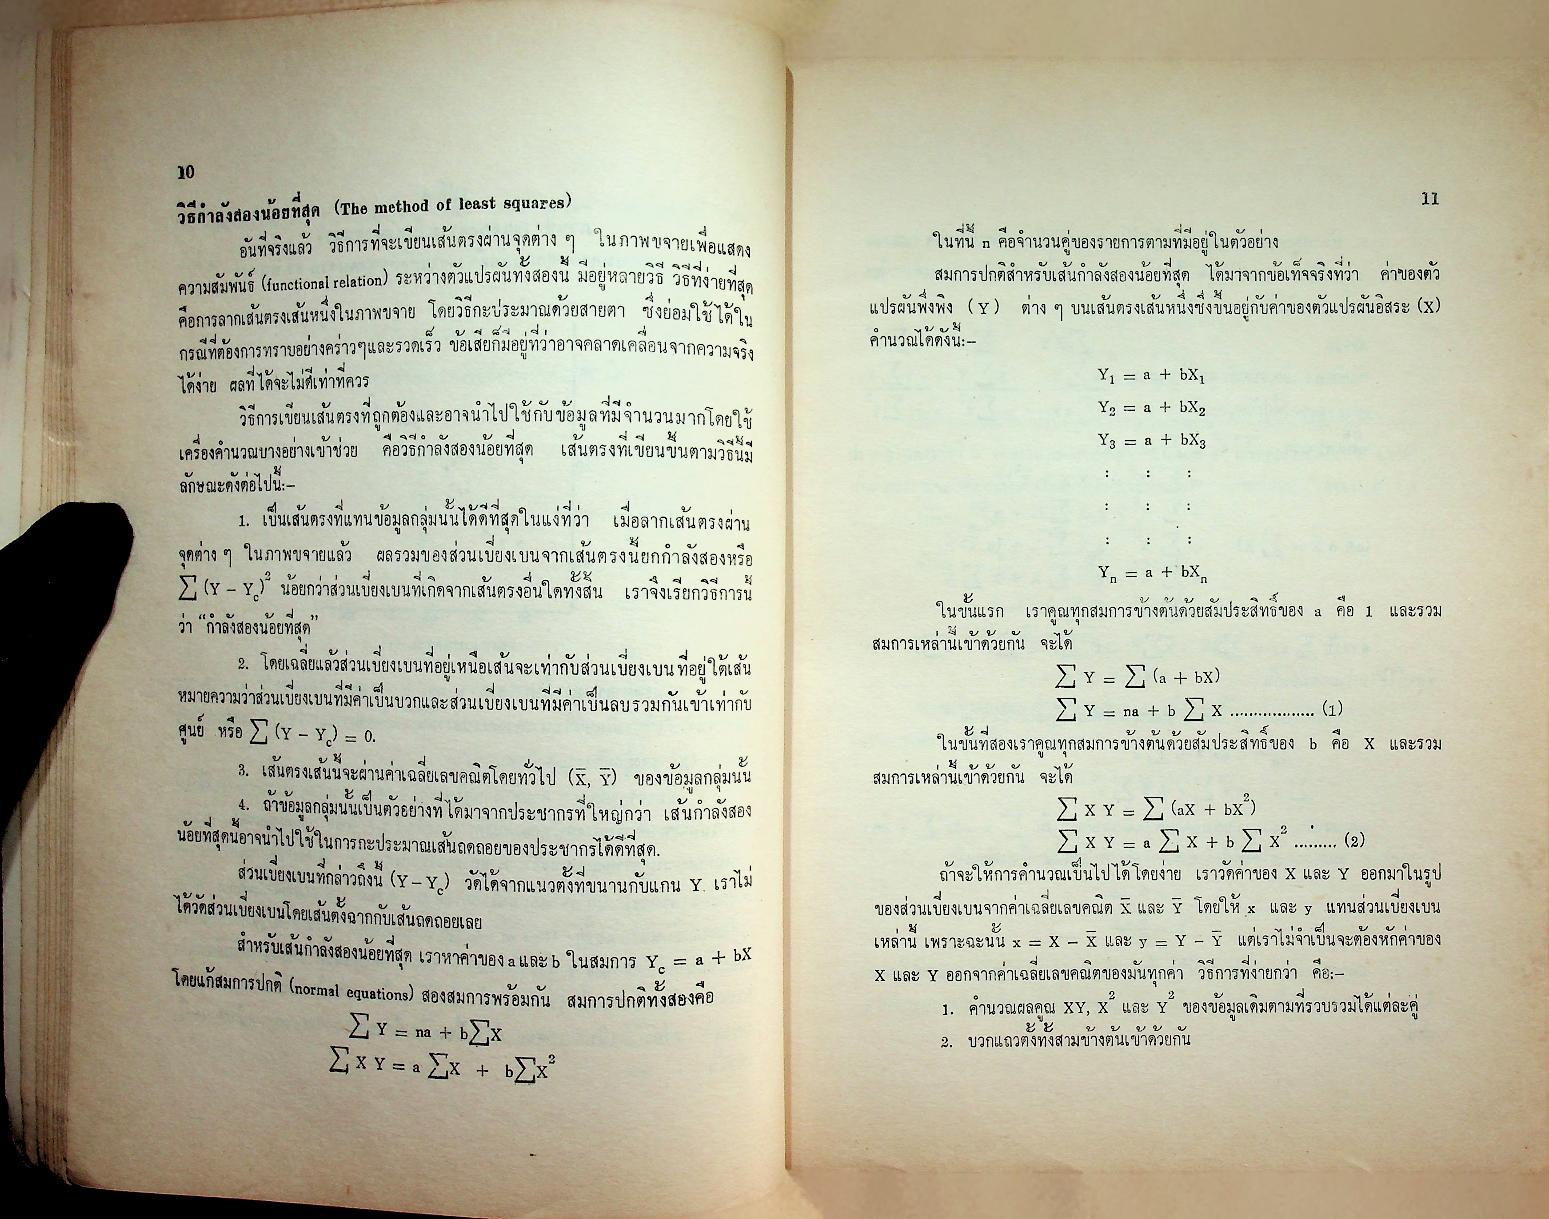 10
วิธีกำลังสองน้อยที่สุด (The method of least squares)
อันที่จริงแล้ว วิธีการที่จะเขียนเส้นตรงผ่านจุดต่าง ๆ ในภาพขจายเพื่อแสดง
ความสัมพันธ์ (functional relation) ระหว่างตัวแปรผันทั้งสองนี้ มีอยู่หลายวิธี วิธีที่ง่ายที่สุด
คือการลากเส้นตรงเส้นหนึ่งในภาพขจาย โดยวิธีกะประมาณด้วยสายตา ซึ่งย่อมใช้ได้ใน
กรณีที่ต้องการทราบอย่างคร่าวๆและรวดเร็ว ข้อเสียก็มีอยู่ที่ว่าอาจคลาดเคลื่อนจากความจริง
ได้ง่าย ผลที่ได้จะไม่ดีเท่าที่ควร
วิธีการเขียนเส้นตรงที่ถูกต้องและอาจนำไปใช้กับข้อมูลที่มีจำนวนมากโดยใช้
เครื่องคำนวณบางอย่างเข้าช่วย คือวิธีกำลังสองน้อยที่สุด เส้นตรงที่เขียนขึ้นตามวิธีนี้มี
ลักษณะดังต่อไปนี้:–
1. เป็นเส้นตรงที่แทนข้อมูลกลุ่มนั้นได้ดีที่สุดในแง่ที่ว่า เมื่อลากเส้นตรงผ่าน
จุดต่าง ๆ ในภาพขจายแล้ว ผลรวมของส่วนเบี่ยงเบนจากเส้นตรงนี้ยกกำลังสองหรือ
∑ (Y – Y_c)² น้อยกว่าส่วนเบี่ยงเบนที่เกิดจากเส้นตรงอื่นใดทั้งสิ้น เราจึงเรียกวิธีการนี้
ว่า “กำลังสองน้อยที่สุด”
2. โดยเฉลี่ยแล้วส่วนเบี่ยงเบนที่อยู่เหนือเส้นจะเท่ากับส่วนเบี่ยงเบนที่อยู่ใต้เส้น
หมายความว่าส่วนเบี่ยงเบนที่มีค่าเป็นบวกและส่วนเบี่ยงเบนที่มีค่าเป็นลบรวมกันเข้าเท่ากับ
ศูนย์ หรือ ∑ (Y – Y_c) = 0.
3. เส้นตรงเส้นนี้จะผ่านค่าเฉลี่ยเลขคณิตโดยทั่วไป (X̄, Ȳ) ของข้อมูลกลุ่มนั้น
4. ถ้าข้อมูลกลุ่มนั้นเป็นตัวอย่างที่ได้มาจากประชากรที่ใหญ่กว่า เส้นกำลังสอง
น้อยที่สุดนี้อาจนำไปใช้ในการกะประมาณเส้นถดถอยของประชากรได้ดีที่สุด.
ส่วนเบี่ยงเบนที่กล่าวถึงนี้ (Y – Y_c) วัดได้จากแนวตั้งที่ขนานกับแกน Y. เราไม่
ได้วัดส่วนเบี่ยงเบนโดยเส้นตั้งฉากกับเส้นถดถอยเลย
สำหรับเส้นกำลังสองน้อยที่สุด เราหาค่าของ a และ b ในสมการ Y_c = a + bX
โดยแก้สมการปกติ (normal equations) สองสมการพร้อมกัน สมการปกติทั้งสองคือ
∑ Y = na + b∑X
∑ X Y = a ∑X + b∑X²
11
ในที่นี้ n คือจำนวนคู่ของรายการตามที่มีอยู่ในตัวอย่าง
สมการปกติสำหรับเส้นกำลังสองน้อยที่สุด ได้มาจากข้อเท็จจริงที่ว่า ค่าของตัว
แปรผันพึ่งพิง (Y) ต่าง ๆ บนเส้นตรงเส้นหนึ่งซึ่งขึ้นอยู่กับค่าของตัวแปรผันอิสระ (X)
คำนวณได้ดังนี้:–
Y₁ = a + bX₁
Y₂ = a + bX₂
Y₃ = a + bX₃
: : :
: : :
: : :
Yₙ = a + bXₙ
ในขั้นแรก เราคูณทุกสมการข้างต้นด้วยสัมประสิทธิ์ของ a คือ 1 และรวม
สมการเหล่านี้เข้าด้วยกัน จะได้
∑ Y = ∑ (a + bX)
∑ Y = na + b ∑ X .................. (1)
ในขั้นที่สองเราคูณทุกสมการข้างต้นด้วยสัมประสิทธิ์ของ b คือ X และรวม
สมการเหล่านี้เข้าด้วยกัน จะได้
∑ X Y = ∑ (aX + bX²)
∑ X Y = a ∑ X + b ∑ X² ......... (2)
ถ้าจะให้การคำนวณเป็นไปได้โดยง่าย เราวัดค่าของ X และ Y ออกมาในรูป
ของส่วนเบี่ยงเบนจากค่าเฉลี่ยเลขคณิต X̄ และ Ȳ โดยให้ x และ y แทนส่วนเบี่ยงเบน
เหล่านี้ เพราะฉะนั้น x = X – X̄ และ y = Y – Ȳ แต่เราไม่จำเป็นจะต้องหักค่าของ
X และ Y ออกจากค่าเฉลี่ยเลขคณิตของมันทุกค่า วิธีการที่ง่ายกว่า คือ:–
1. คำนวณผลคูณ XY, X² และ Y² ของข้อมูลเดิมตามที่รวบรวมได้แต่ละคู่
2. บวกแถวตั้งทั้งสามข้างต้นเข้าด้วยกัน